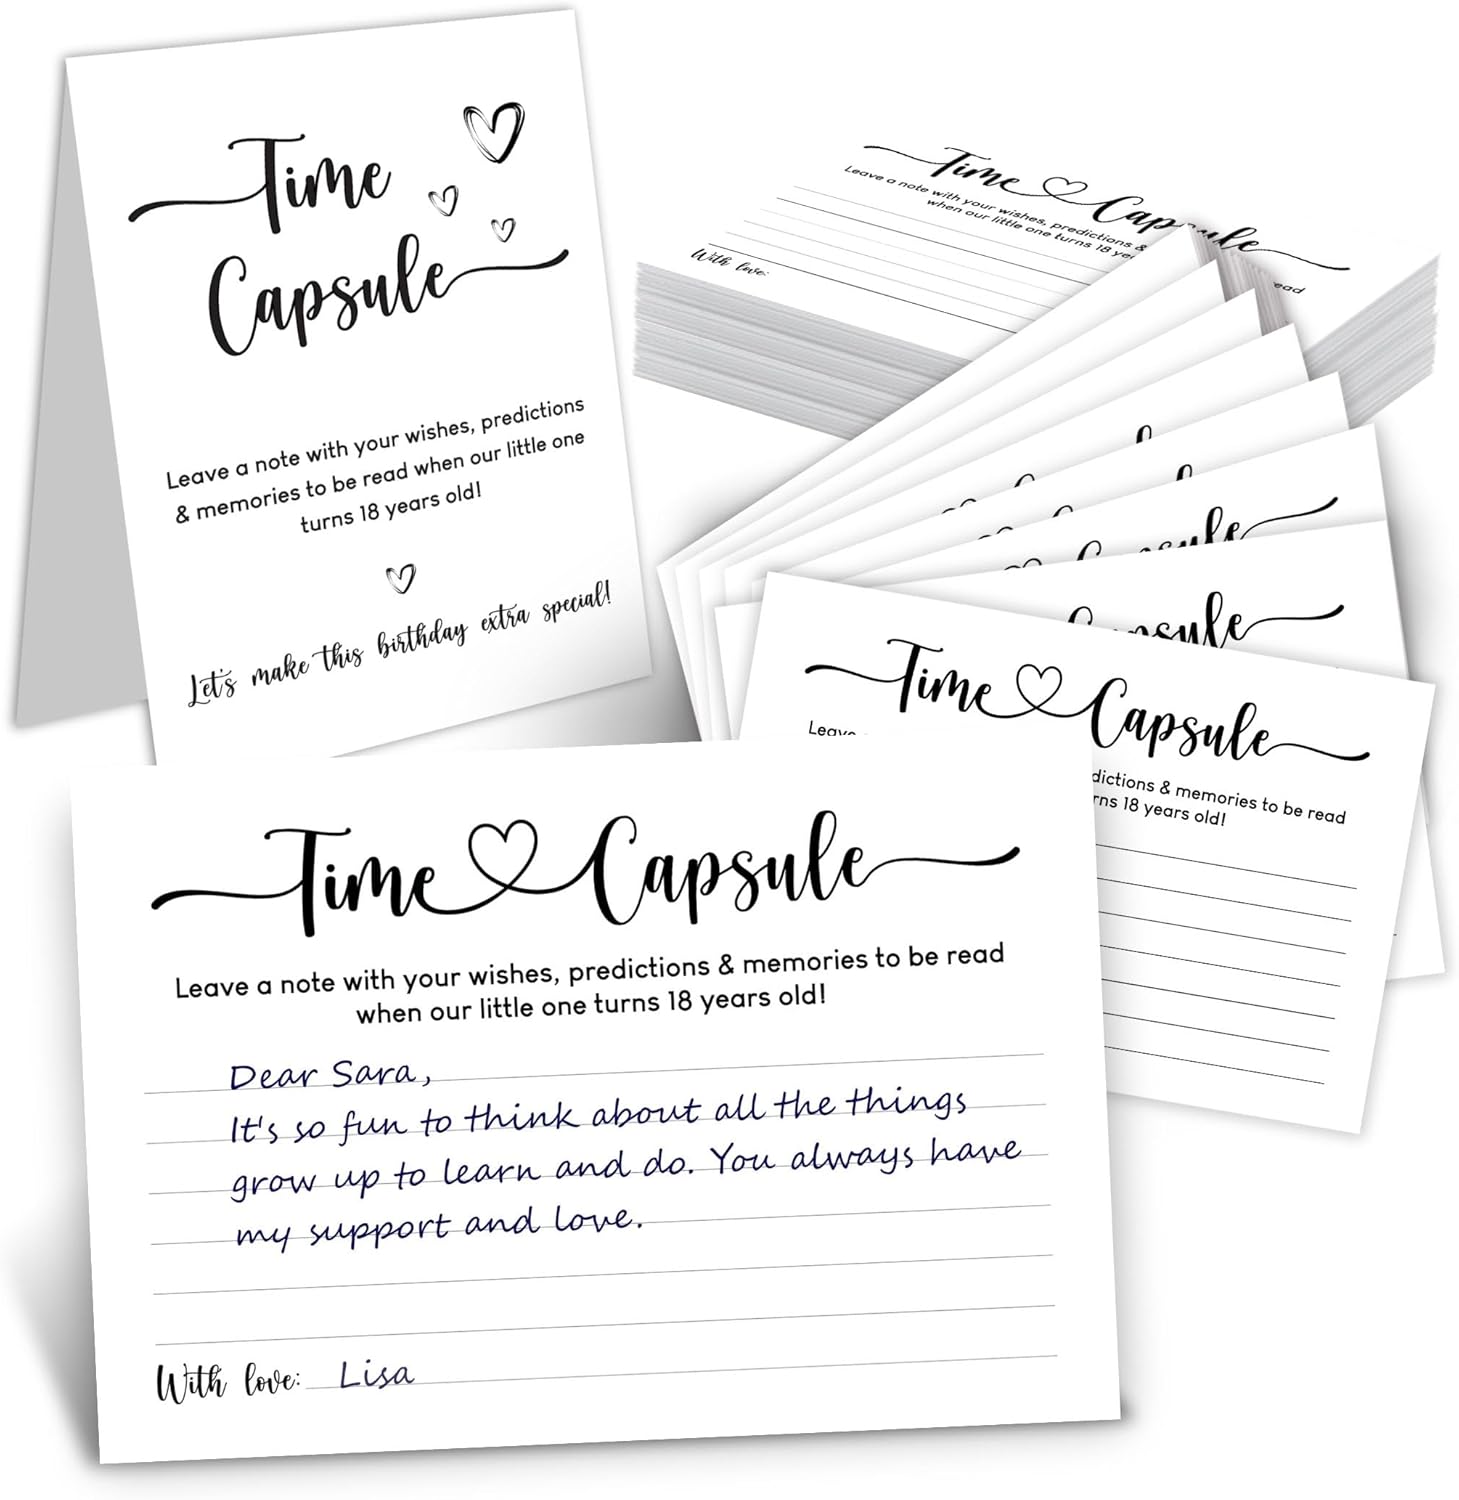 Time
Capsule
Leave a note with your wishes, predictions
& memories to be read when our little one
turns 18 years old!
Let's make this birthday extra special!
Time Capsule
Leave a note with your wishes, predictions &
when our little one turns 18 yea
ead
With love:
Capsule
Capsule
Time Capsule
Leave
dictions & memories to be read
rns 18 years old!
Time Capsule
Leave a note with your wishes, predictions & memories to be read
when our little one turns 18 years old!
Dear Sara,
It's so fun to think about all the things
grow up to learn and do. You always have
my support and love.
With love: Lisa